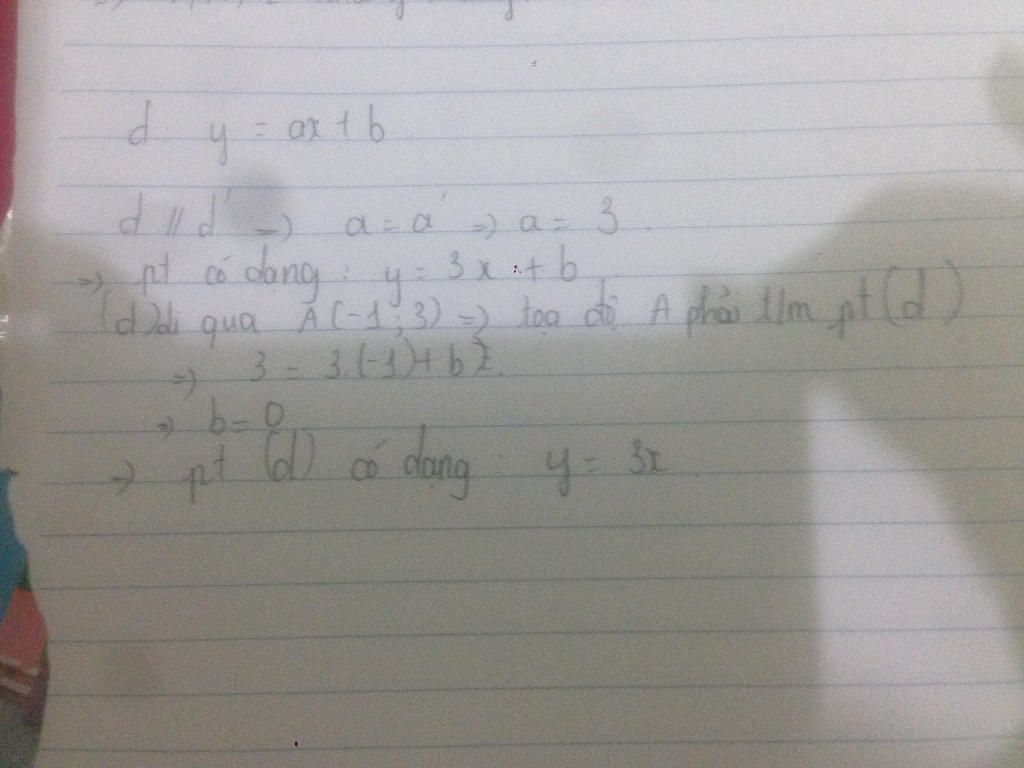 d y = ax + b
d // d' => a = a' => a = 3
=> pt có dang : y = 3x + b
(d) đi qua A(-1; 3) => tọa độ A phải t/m pt (d)
=> 3 = 3.(-1) + b
=> b = 0
=> pt (d) có dạng : y = 3x